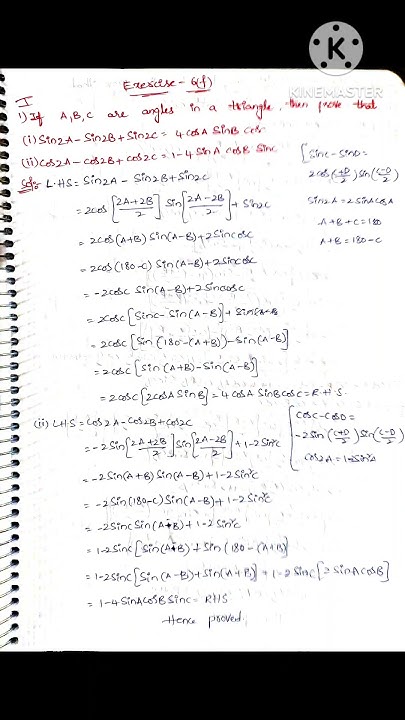 KINEMASTER
Exercise - 6(f)
I
1) If A, B, C are angles in a triangle, then prove that
(i) Sin2A - Sin2B + Sin2C = 4 cosA SinB cosc
(ii) Cos2A - cos2B + cos2C = 1-4 SinA cosB Sinc
Soln:- L.H.S = Sin2A - Sin2B + Sin2C
= 2cos [2A+2B/2] Sin [2A-2B/2] + Sin2C
= 2cos(A+B) Sin(A-B) + 2Sinc cosc
= 2cos(180-C) Sin(A-B) + 2Sinc cosc
= -2cosc Sin(A-B) + 2Sinc cosc
= 2cosc [Sinc - Sin(A-B)]
= 2cosc [Sin (180-(A+B)) - Sin(A-B)]
= 2cosc [Sin (A+B) - Sin(A-B)]
= 2cosc [2cosA SinB] = 4 cosA SinB cosc = R.H.S.
[Sinc - SinD =
2cos(C+D/2) Sin(C-D/2)
Sin2A = 2 SinA cosA
A+B+C = 180
A+B = 180-C
(ii) LHS = Cos2A - Cos2B + Cos2C
= -2Sin [2A+2B/2] Sin [2A-2B/2] + 1-2Sin²c
= -2Sin(A+B) Sin(A-B) + 1-2Sin²c
= -2Sin(180-C) Sin(A-B) + 1-2Sin²c
= -2Sinc Sin(A-B) + 1-2Sin²c
= 1-2Sinc [Sin(A-B) + Sin (180-(A+B))]
= 1-2Sinc [Sin(A-B) + Sin(A+B)] + 1-2 Sinc [2 SinA cosB]
= 1-4 SinA cosB Sinc = RHS
Hence proved.
cosc - cosD =
-2 Sin (C+D/2) Sin(C-D/2)
cos2A = 1-2Sin²A